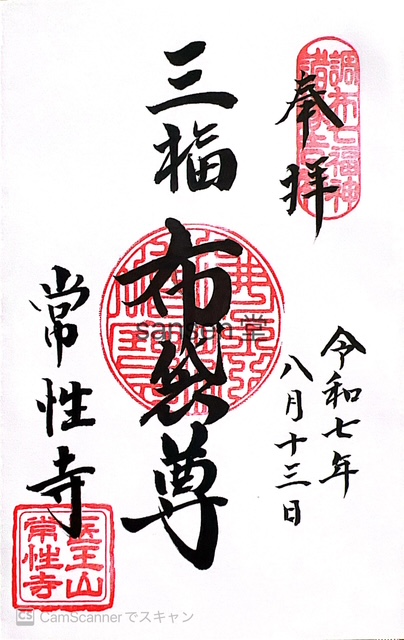 奉拝
調布七福神
令和七年
八月十三日
三福
布袋尊
sansun堂
常性寺
医王山
常性寺
CS CamScannerでスキャン